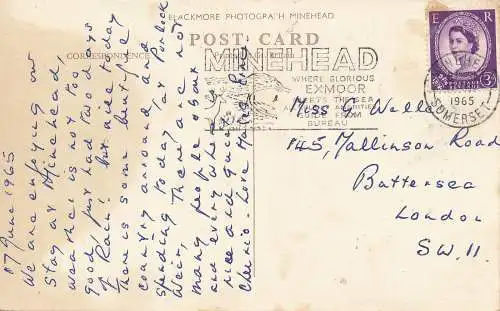 BLACKMORE PHOTOGRAPH MINEHEAD
POST CARD
CORRESPONDENCE
MINEHEAD
WHERE GLORIOUS
EXMOOR
MEETS THE SEA
GUIDE FROM
BUREAU
E R
POSTAGE
3D
MINEHEAD
1965
SOMERSET
17 June 1965
We are enjoying our
Stay at Minehead
weather is not too
good just had two days
of Rain. But nice today
There is some beautiful
country around and
spending today at Porlock
Weir, There are not
many people about
and every where
nice and quiet
Cheerio. Love
Miss E Weller
145, Mallinson Road
Battersea
London
S.W.11.